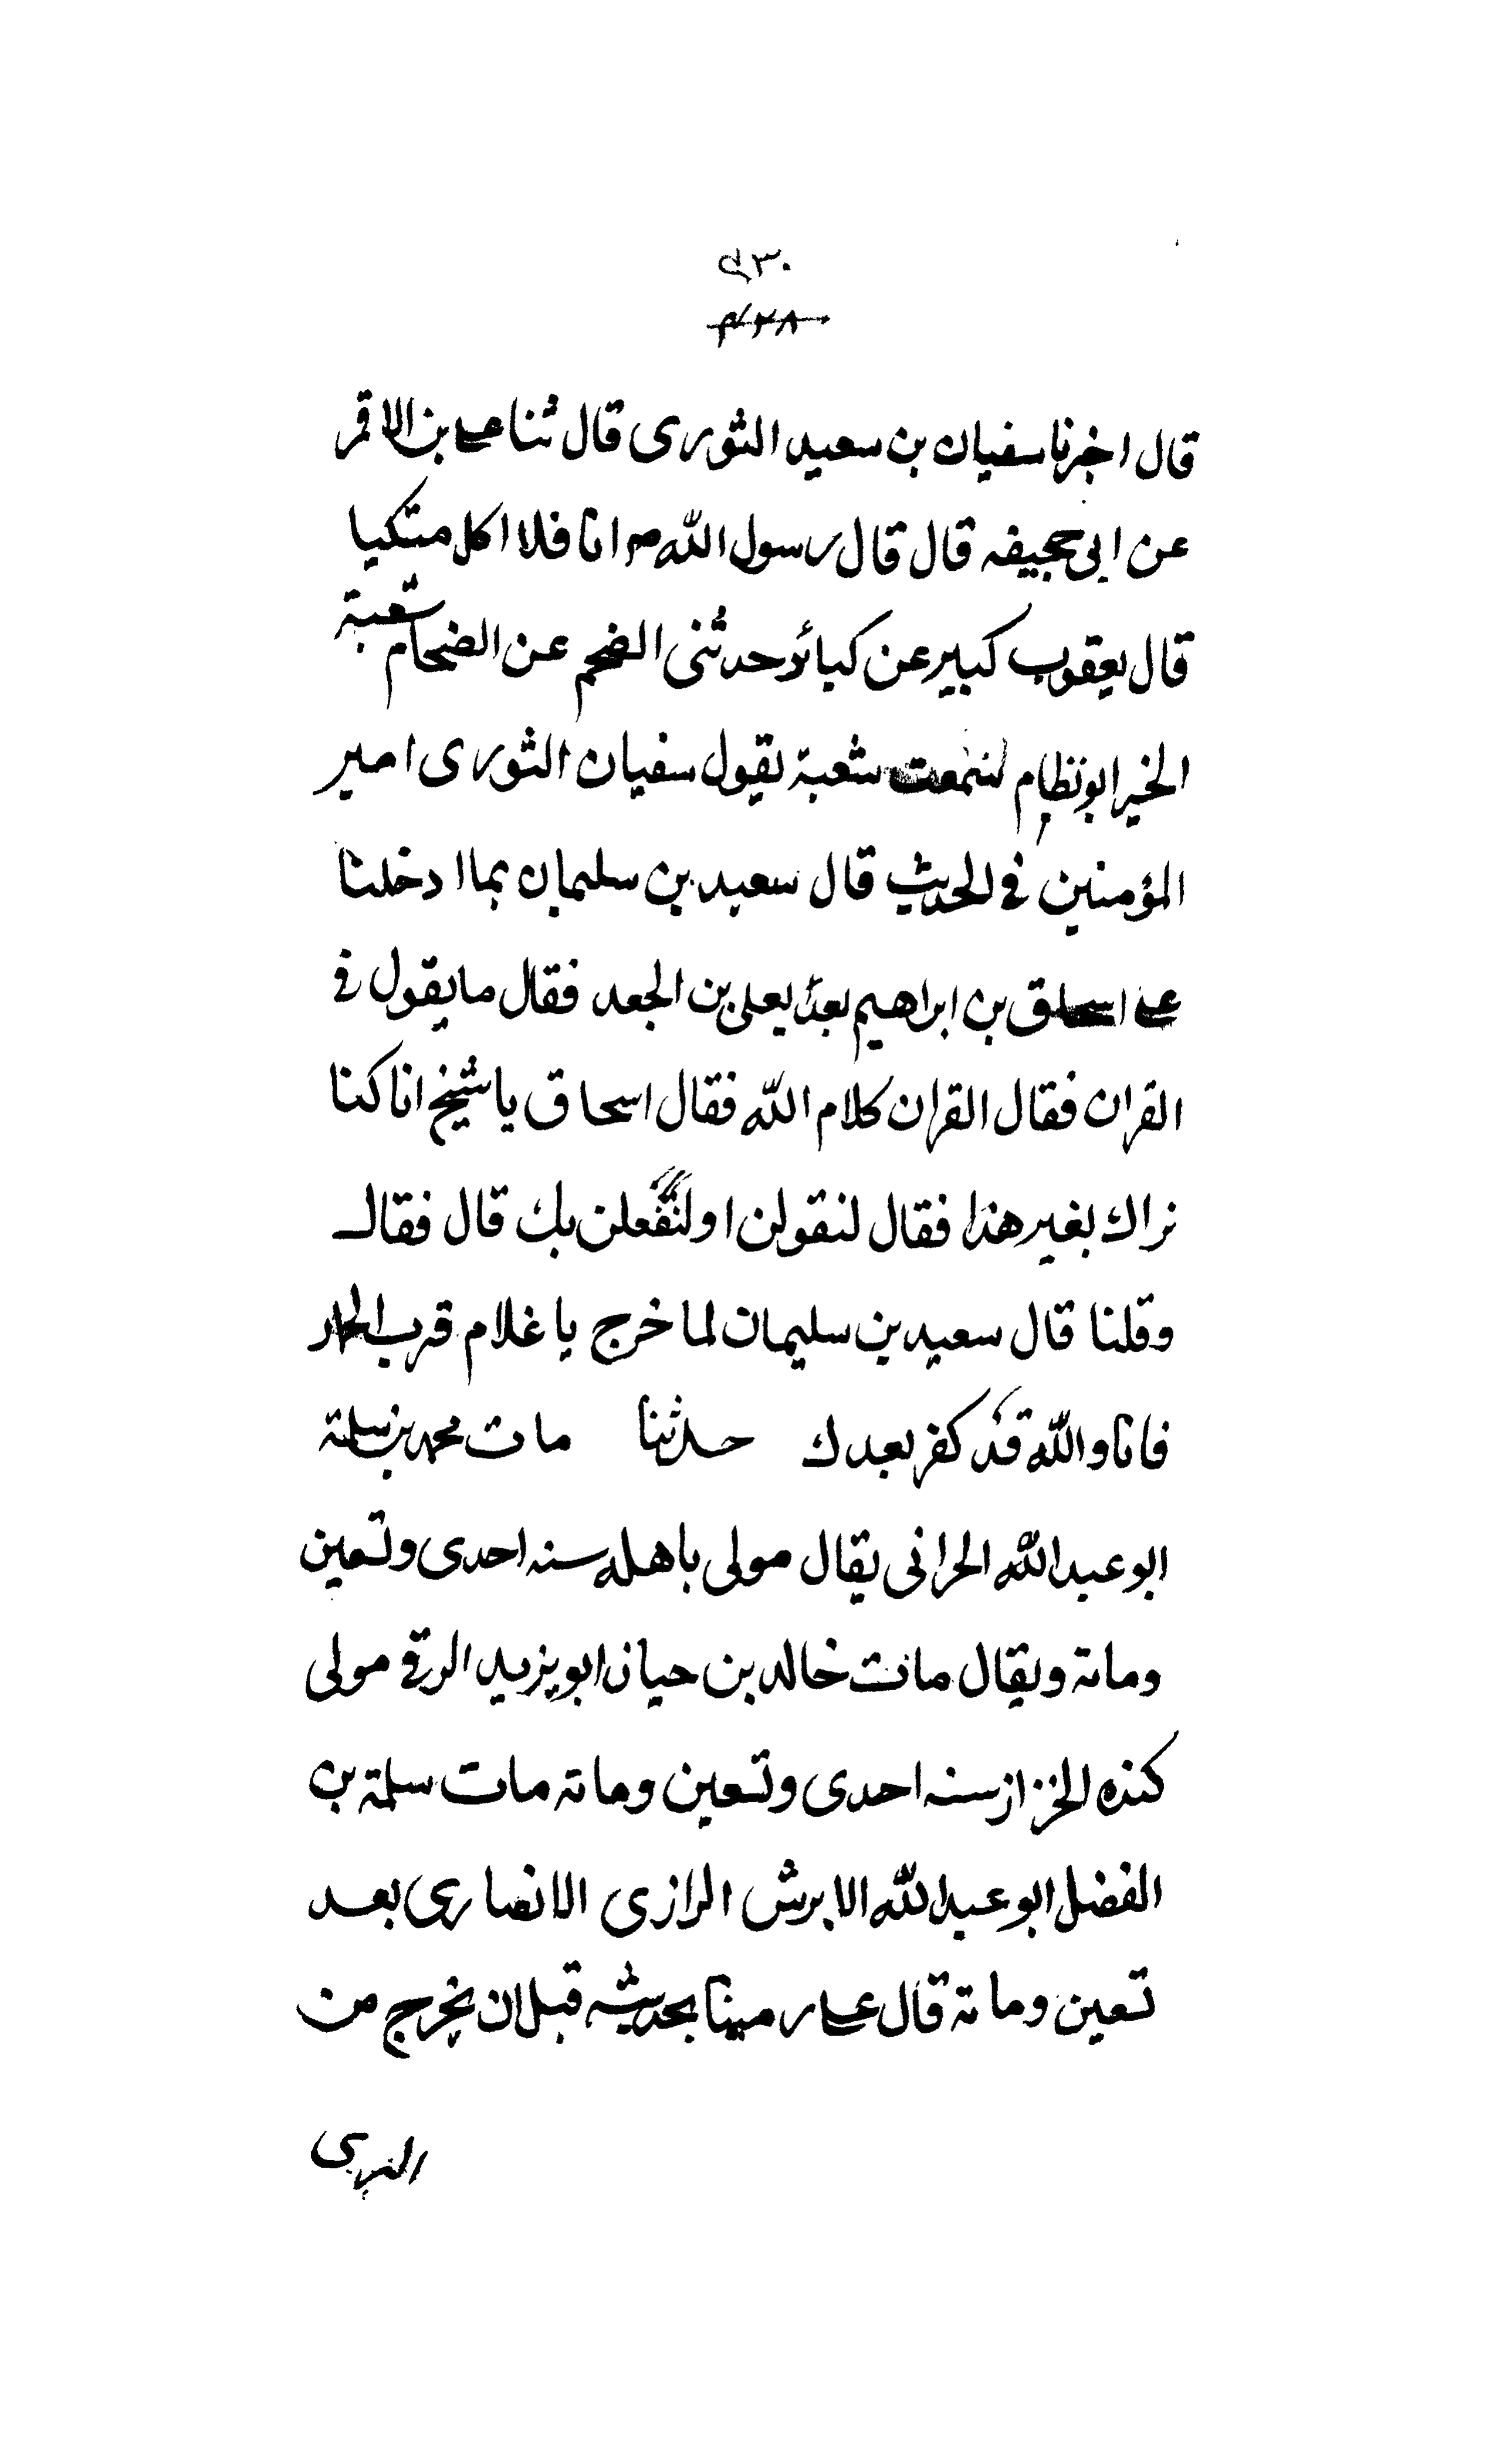 ٤٣٠
٤٢٨
قال اخبرنا سفيان بن سعيد الثوری قال ثنا علی بن الاقمر
عن ابی جحيفه قال قال رسول الله ص انا فلا اكل متكيا
قال يعقوب كبير عن كبائر حدثنی عن شعبة
الخير ابو شعبة يقول سفيان الثوری امير
المؤمنين فی الحديث قال سعيد بن سليمان بما ادخلنا
علی اسحاق بن ابراهيم بعد يعلی بن الجعد فقال ما يقول فی
القران فقال القران كلام الله فقال اسحاق يا شيخ انا كنا
نراك بغير هذا فقال لنقولن او لنفعلن بك قال فقال
وقلنا قال سعيد بن سليمان لما خرج يا غلام قرب الحمار
فانا والله قد كفر بعدك حدثنا مات محمد بن سلمة
ابو عبد الله الحرانی يقال مولی باهله سنه احدی وتسعين
ومائة ويقال مات خالد بن حيان ابو يزيد الرقی مولی
كنده الخزاز سنه احدی وتسعين ومائة مات سلمة بن
الفضل ابو عبد الله الابرش الرازی الانصاری بعد
تسعين ومائة قال علی رمينا بحديثه قبل ان يخرج من
الری